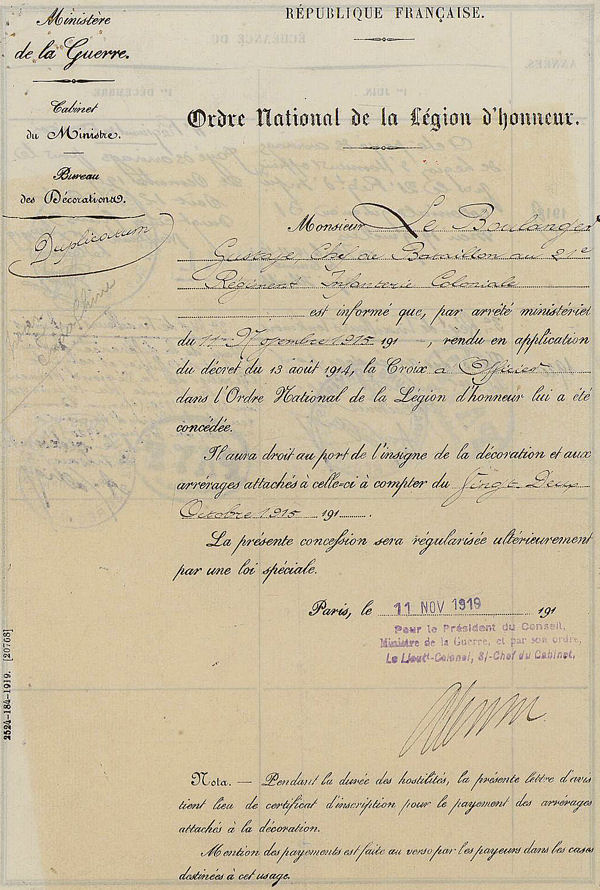 Ministère
de la Guerre.
Cabinet
du Ministre.
Bureau
des Décorations.
Duplicatum
RÉPUBLIQUE FRANÇAISE.
Ordre National de la Légion d'honneur.
Monsieur Le Boulanger
Gustave, Chef de Bataillon au 21e
Régiment Infanterie Coloniale
est informé que, par arrêté ministériel
du 11 Novembre 1915 191 , rendu en application
du décret du 13 août 1914, la Croix d'Officier
dans l'Ordre National de la Légion d'honneur lui a été
concédée.
Il aura droit au port de l'insigne de la décoration et aux
arrérages attachés à celle-ci à compter du Vingt Deux
Octobre 1915 191 .
La présente concession sera régularisée ultérieurement
par une loi spéciale.
Paris, le 11 NOV 1919 191
Pour le Président du Conseil,
Ministre de la Guerre, et par son ordre,
Le Lieutt-Colonel, S/-Chef du Cabinet,
2524-184-1919. [20768]
Nota. — Pendant la durée des hostilités, la présente lettre d'avis
tient lieu de certificat d'inscription pour le payement des arrérages
attachés à la décoration.
Mention des payements est faite au verso par les payeurs dans les cases
destinées à cet usage.